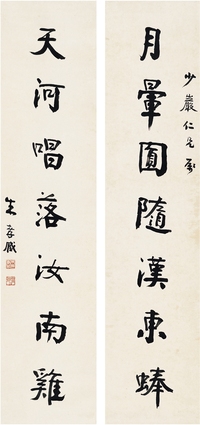 月暈圓隨漢東蜯
少巖仁兄屬
天河唱落汝南雞
朱孝臧